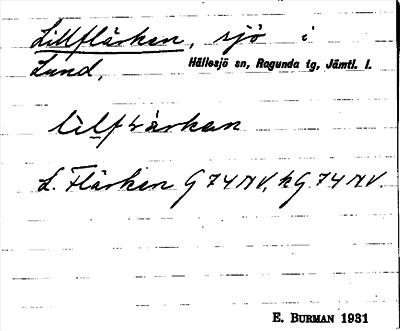 Lillflärken, sjö i
Lund, Hällesjö sn, Ragunda tg, Jämtl. l.
L. Flärken G 74 NV, hG 74 NV.
E. BURMAN 1931